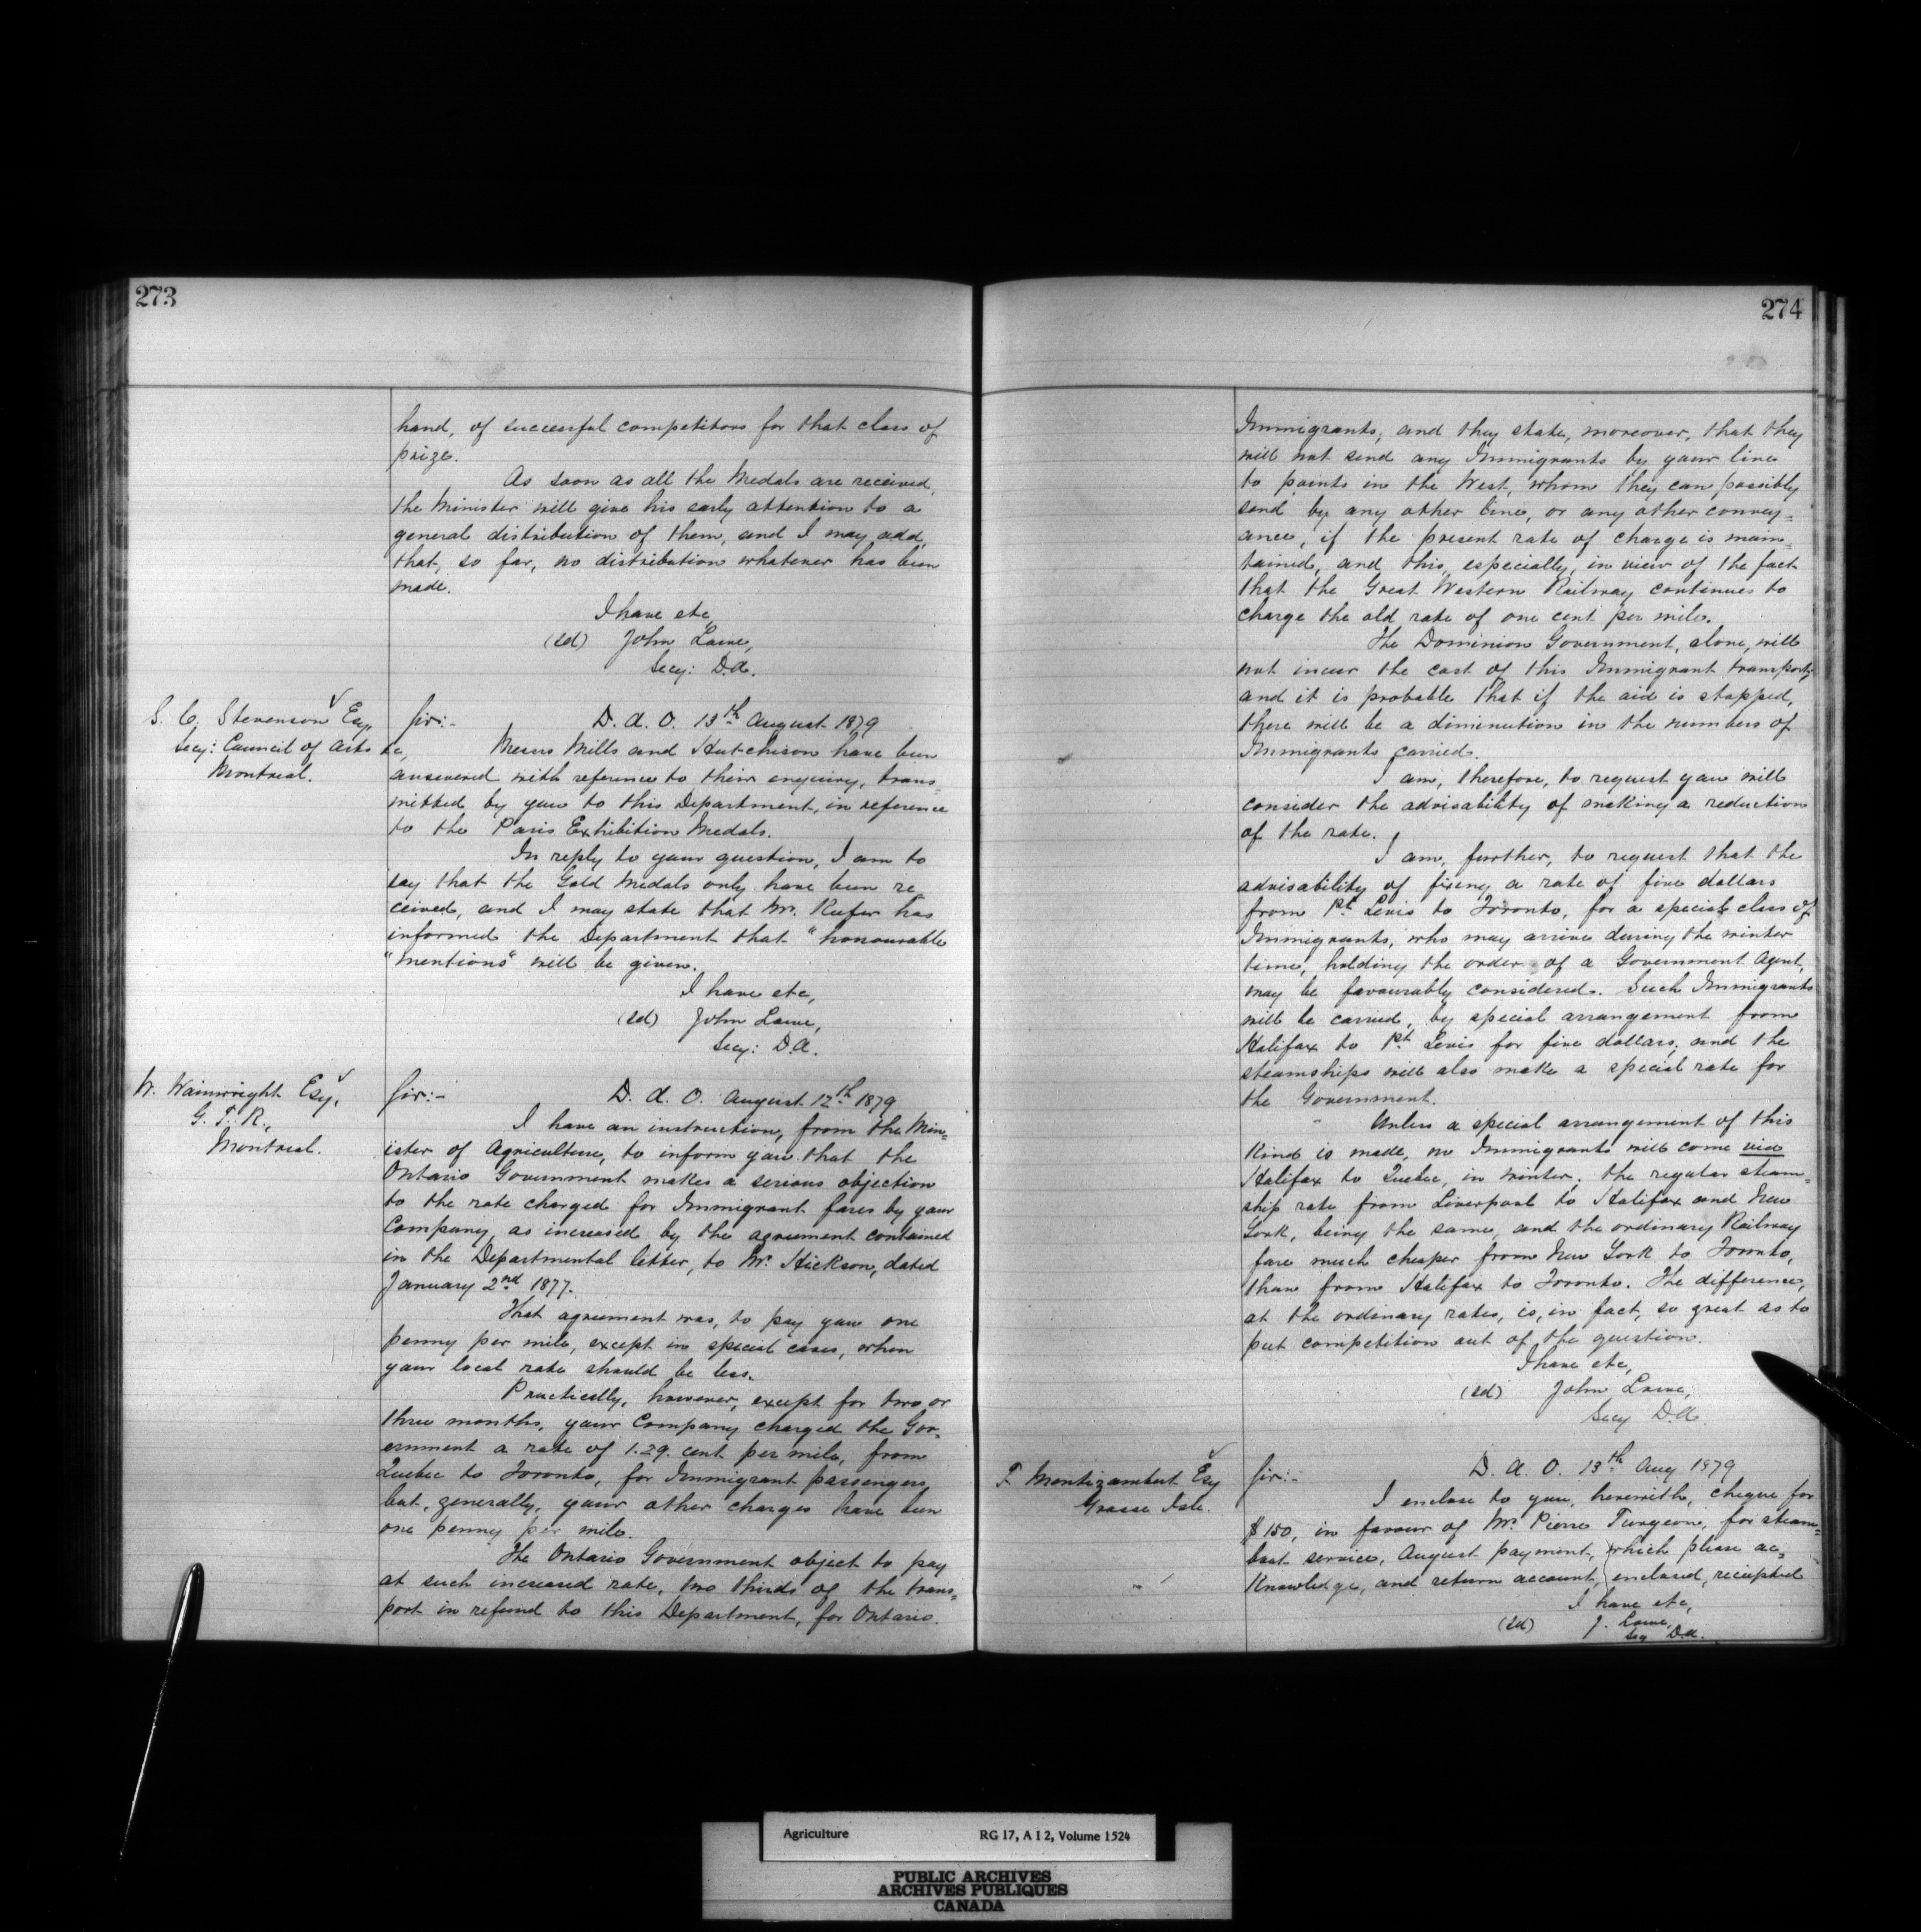 273
hand, of successful competitors for that class of
prize.
As soon as all the Medals are received,
the Minister will give his early attention to a
general distribution of them, and I may add,
that, so far, no distribution whatever has been
made.
I have etc,
(sd) John Lowe,
Secy: D.A.
S. C. Stevenson Esq,
Secy: Council of Arts &c,
Montreal.
Sir:- D. A. O. 13th August 1879
Messrs Mills and Hutchison have been
answered with reference to their enquiry, trans=
mitted by you to this Department, in reference
to the Paris Exhibition Medals.
In reply to your question, I am to
say that the Gold Medals only have been re
ceived, and I may state that Mr. Keefer has
informed the Department that "honourable
"mentions" will be given.
I have etc,
(sd) John Lowe,
Secy: D.A.
W. Wainwright Esq,
G. T. R.,
Montreal.
Sir:- D. A. O. August 12th 1879
I have an instruction, from the Min=
ister of Agriculture, to inform you that the
Ontario Government makes a serious objection
to the rate charged for Immigrant fares by your
Company, as increased by the agreement contained
in the Departmental letter, to Mr. Hickson, dated
January 2nd 1877.
That agreement was, to pay you one
penny per mile, except in special cases, when
your local rate should be less.
Practically, however, except for two or
three months, your Company charged the Gov=
ernment a rate of 1.29. cent per mile, from
Quebec to Toronto, for Immigrant passengers
but, generally, your other charges have been
one penny per mile.
The Ontario Government object to pay
at such increased rate, two thirds of the trans=
port in refund to this Department, for Ontario.
274
Immigrants; and they state, moreover, that they
will not send any Immigrants by your line
to points in the West, whom they can possibly
send by any other line, or any other convey=
ance, if the present rate of charge is main=
tained, and this, especially, in view of the fact
that the Great Western Railway continues to
charge the old rate of one cent per mile.
The Dominion Government, alone, will
not incur the cost of this Immigrant transport,
and it is probable that if the aid is stopped,
there will be a diminution in the numbers of
Immigrants carried.
I am, therefore, to request you will
consider the advisability of making a reduction
of the rate.
I am, further, to request that the
advisability of fixing a rate of five dollars
from Pt Levis to Toronto, for a special class of
Immigrants, who may arrive during the winter
time, holding the order of a Government Agent,
may be favourably considered. Such Immigrants
will be carried, by special arrangement from
Halifax to Pt Levis for five dollars, and the
steamships will also make a special rate for
the Government.
Unless a special arrangement of this
kind is made, no Immigrants will come via
Halifax to Quebec, in winter. The regular steam=
ship rate from Liverpool to Halifax and New
York, being the same, and the ordinary Railway
fare much cheaper from New York to Toronto,
than from Halifax to Toronto. The difference,
at the ordinary rates, is, in fact, so great as to
put competition out of the question.
I have etc,
(sd) John Lowe,
Secy D.A.
F. Montizambert Esq
Grosse Isle.
Sir:- D. A. O. 13th Aug 1879
I enclose to you, herewith, cheque for
$150, in favour of Mr. Pierre Turgeon, for steam=
boat service, August payment, which please ac=
knowledge, and return account, enclosed, receipted
I have etc,
(sd) J. Lowe,
Secy D.A.
Agriculture RG 17, A I 2, Volume 1524
PUBLIC ARCHIVES
ARCHIVES PUBLIQUES
CANADA